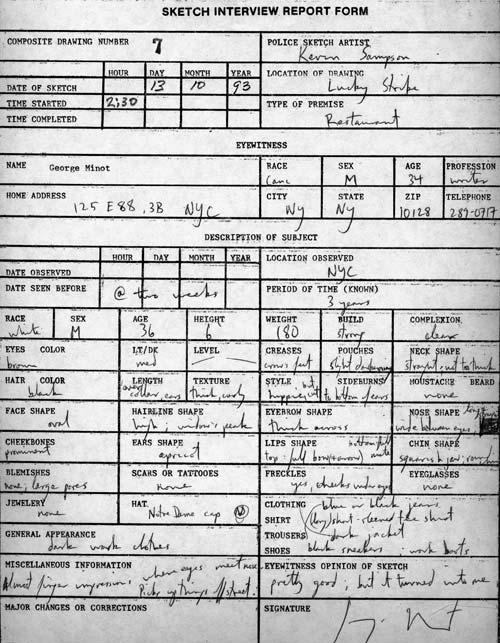 SKETCH INTERVIEW REPORT FORM
COMPOSITE DRAWING NUMBER 7
POLICE SKETCH ARTIST
Kevin Sampson
HOUR DAY MONTH YEAR
DATE OF SKETCH 13 10 93
TIME STARTED 2:30
TIME COMPLETED
LOCATION OF DRAWING
Lucky Strike
TYPE OF PREMISE
Restaurant
EYEWITNESS
NAME George Minot
RACE SEX AGE PROFESSION
Cauc M 34 writer
HOME ADDRESS
125 E 88, 3B NYC
CITY STATE ZIP TELEPHONE
NY NY 10128 289-0717
DESCRIPTION OF SUBJECT
HOUR DAY MONTH YEAR
DATE OBSERVED
LOCATION OBSERVED
NYC
DATE SEEN BEFORE @ two weeks
PERIOD OF TIME (KNOWN)
3 years
RACE SEX AGE HEIGHT WEIGHT BUILD COMPLEXION
white M 36 6 180 strong clear
EYES COLOR LT/DK LEVEL CREASES POUCHES NECK SHAPE
brown med crow's feet slight straight, not too thick
HAIR COLOR LENGTH TEXTURE STYLE SIDEBURNS MOUSTACHE BEARD
black over collar, ears thick, curly hippie, but to bottom of ears none
FACE SHAPE HAIRLINE SHAPE EYEBROW SHAPE NOSE SHAPE
oval high; widow's peak thick across wide between eyes
CHEEKBONES EARS SHAPE LIPS SHAPE CHIN SHAPE
prominent apricot top: full bottom: full squarish jaw;
BLEMISHES SCARS OR TATTOOES FRECKLES EYEGLASSES
none; large pores none yes, cheeks under eyes none
JEWELERY HAT
none Notre Dame cap
CLOTHING blue or black jeans
SHIRT long/short-sleeved tee shirt
TROUSERS dark jacket
SHOES black sneakers; work boots
GENERAL APPEARANCE
dark work clothes
MISCELLANEOUS INFORMATION where eyes meet nose.
Almost finger impressions Picks up things off street.
EYEWITNESS OPINION OF SKETCH
pretty good; but it turned into me
MAJOR CHANGES OR CORRECTIONS
SIGNATURE